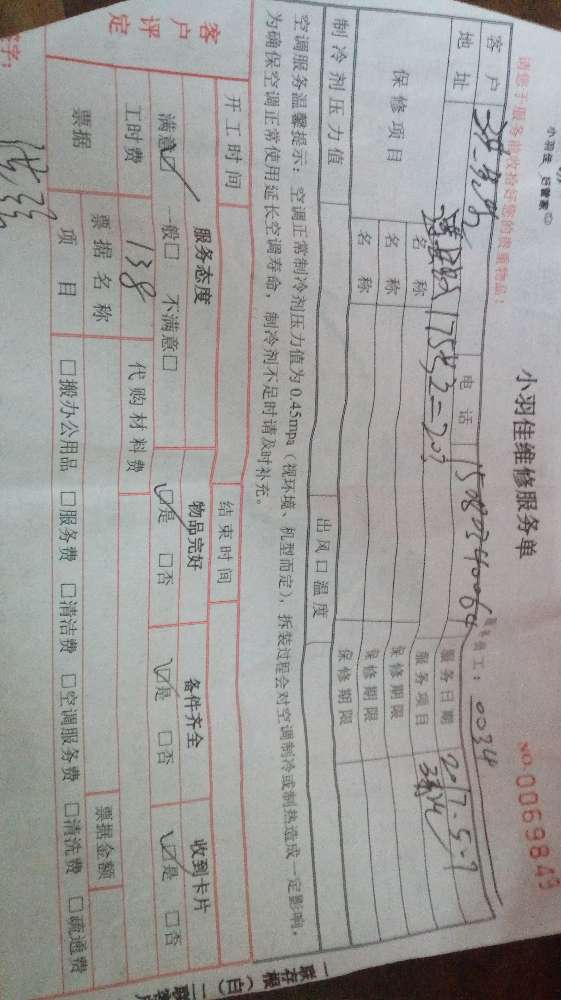 小羽佳 好管家
请您于服务前收拾好您的贵重物品!
小羽佳维修服务单
NO.0069849
服务员工: 0034
客户 电话 15080340064 服务日期 2017.5.9
地址 175号2=203 服务项目
保修项目 名称 保修期限
名称 保修期限
名称 保修期限
制冷剂压力值 出风口温度
空调服务温馨提示: 空调正常制冷剂压力值为0.45mpa(视环境、机型而定), 拆装过程会对空调制冷或制热造成一定影响,
为确保空调正常使用延长空调寿命, 制冷剂不足时请及时补充。
开工时间 结束时间
客户评定 服务态度 物品完好 备件齐全 收到卡片
满意☑ 一般□ 不满意□ ☑是 □否 ☑是 □否 ☑是 □否
工时费 138 代购材料费
票据 票据名称 票据金额
项目 □搬办公用品 □服务费 □清洁费 □空调服务费 □清洗费 □疏通费
签字:
一联存根(白) 二联客户